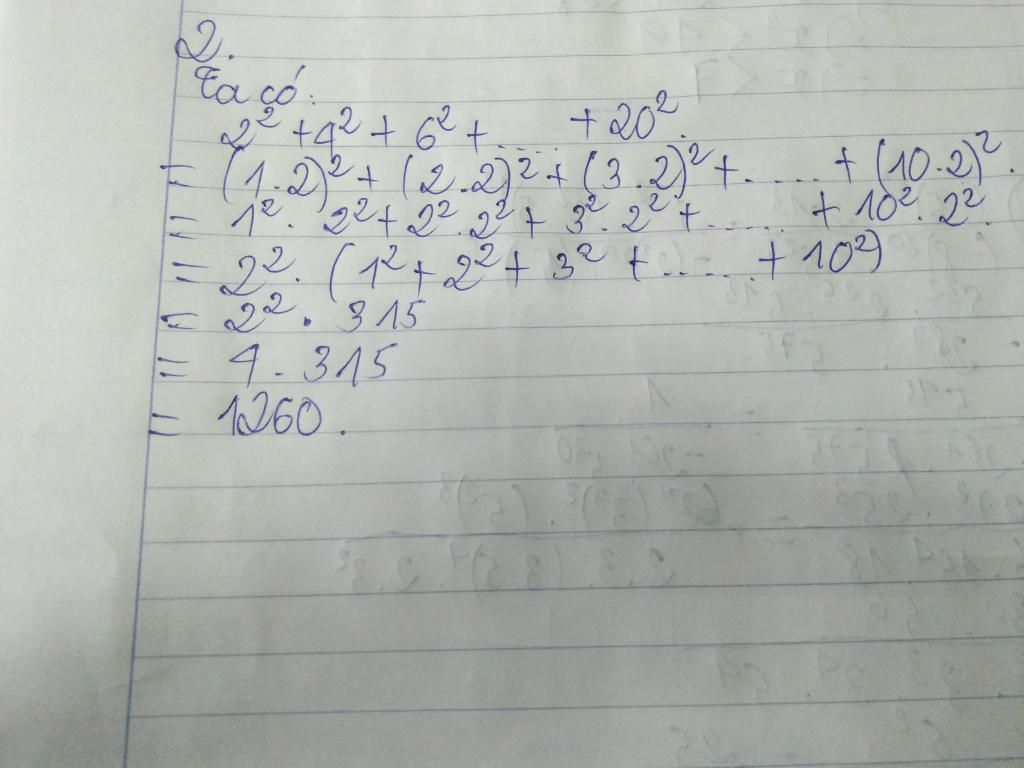 2.
Ta có:
2² + 4² + 6² + ..... + 20².
= (1.2)² + (2.2)² + (3.2)² + ..... + (10.2)².
= 1². 2² + 2². 2² + 3². 2² + ...... + 10². 2².
= 2². (1² + 2² + 3² + ..... + 10²)
= 2². 315
= 4. 315
= 1260.